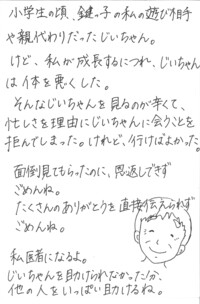 小学生の頃、鍵っ子の私の遊び相手
や親代わりだったじいちゃん。
けど、私が成長するにつれ、じいちゃん
は体を悪くした。
そんなじいちゃんを見るのが辛くて、
忙しさを理由にじいちゃんに会うことを
拒んでしまった。けれど、行けばよかった。
面倒見てもらったのに、恩返しできず
ごめんね。
たくさんのありがとうを直接伝えられず
ごめんね。
私医者になるよ。
じいちゃんを助けられなかった分、
他の人をいっぱい助けるね。